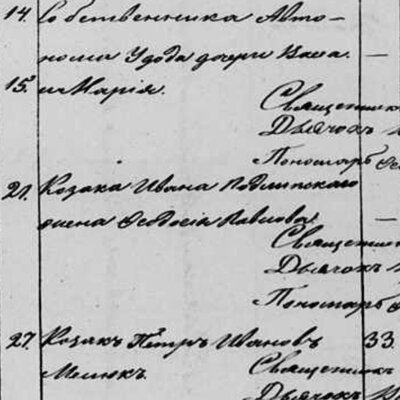 14. Собственника Авто-
нома Удода дочери Васса. —
15. и Марія.
Священник
Дьячокъ
Пономарь
21. Козака Ивана Подлипскаго
жена Ѳеодосія Павлова. —
Священник
Дьячокъ
Пономарь
27. Козакъ Петръ Ивановъ 33.
Мелюкъ.
Священник
Дьячокъ